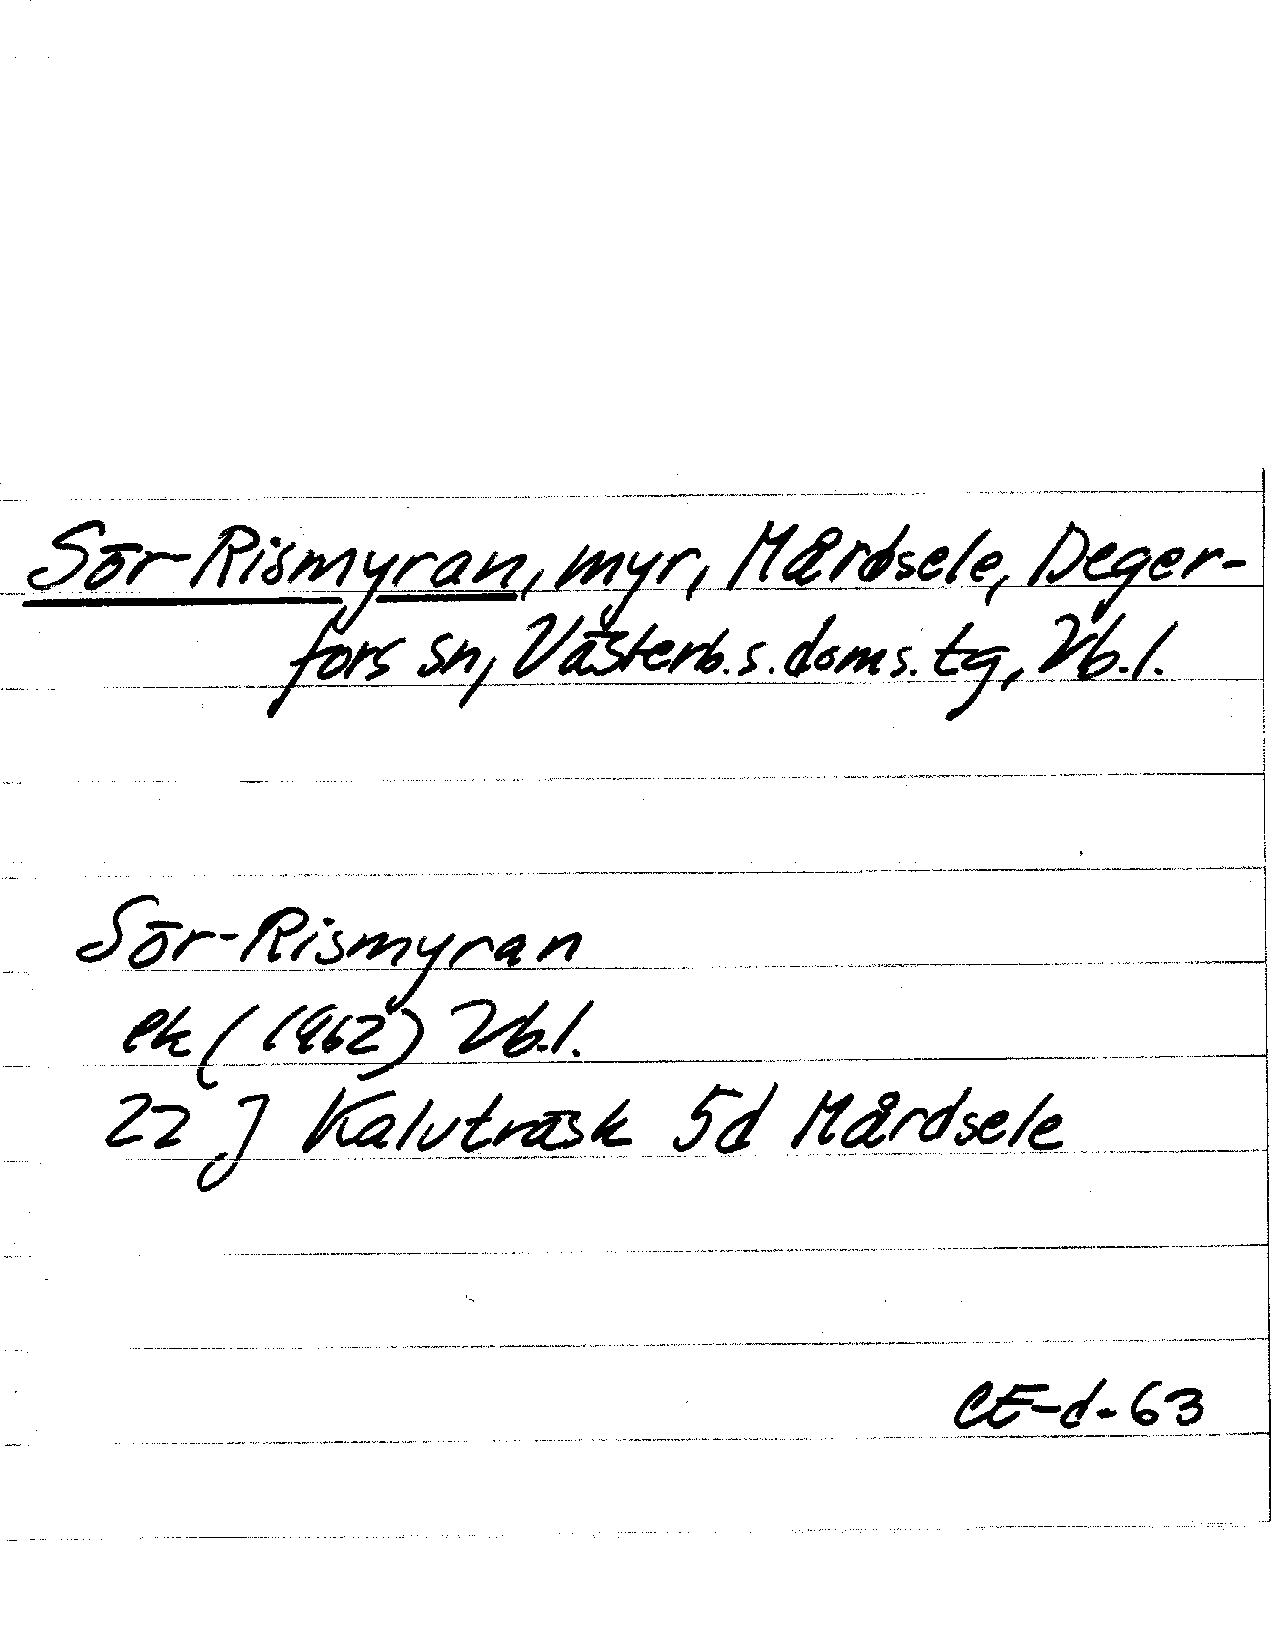 Sör-Rismyran, myr, Mårdsele, Deger-
fors sn, Västerb.s.doms.tg, Vb.l.
Sör-Rismyran
ek (1962) Vb.l.
22 J Kalvträsk 5d Mårdsele
CE-d-63